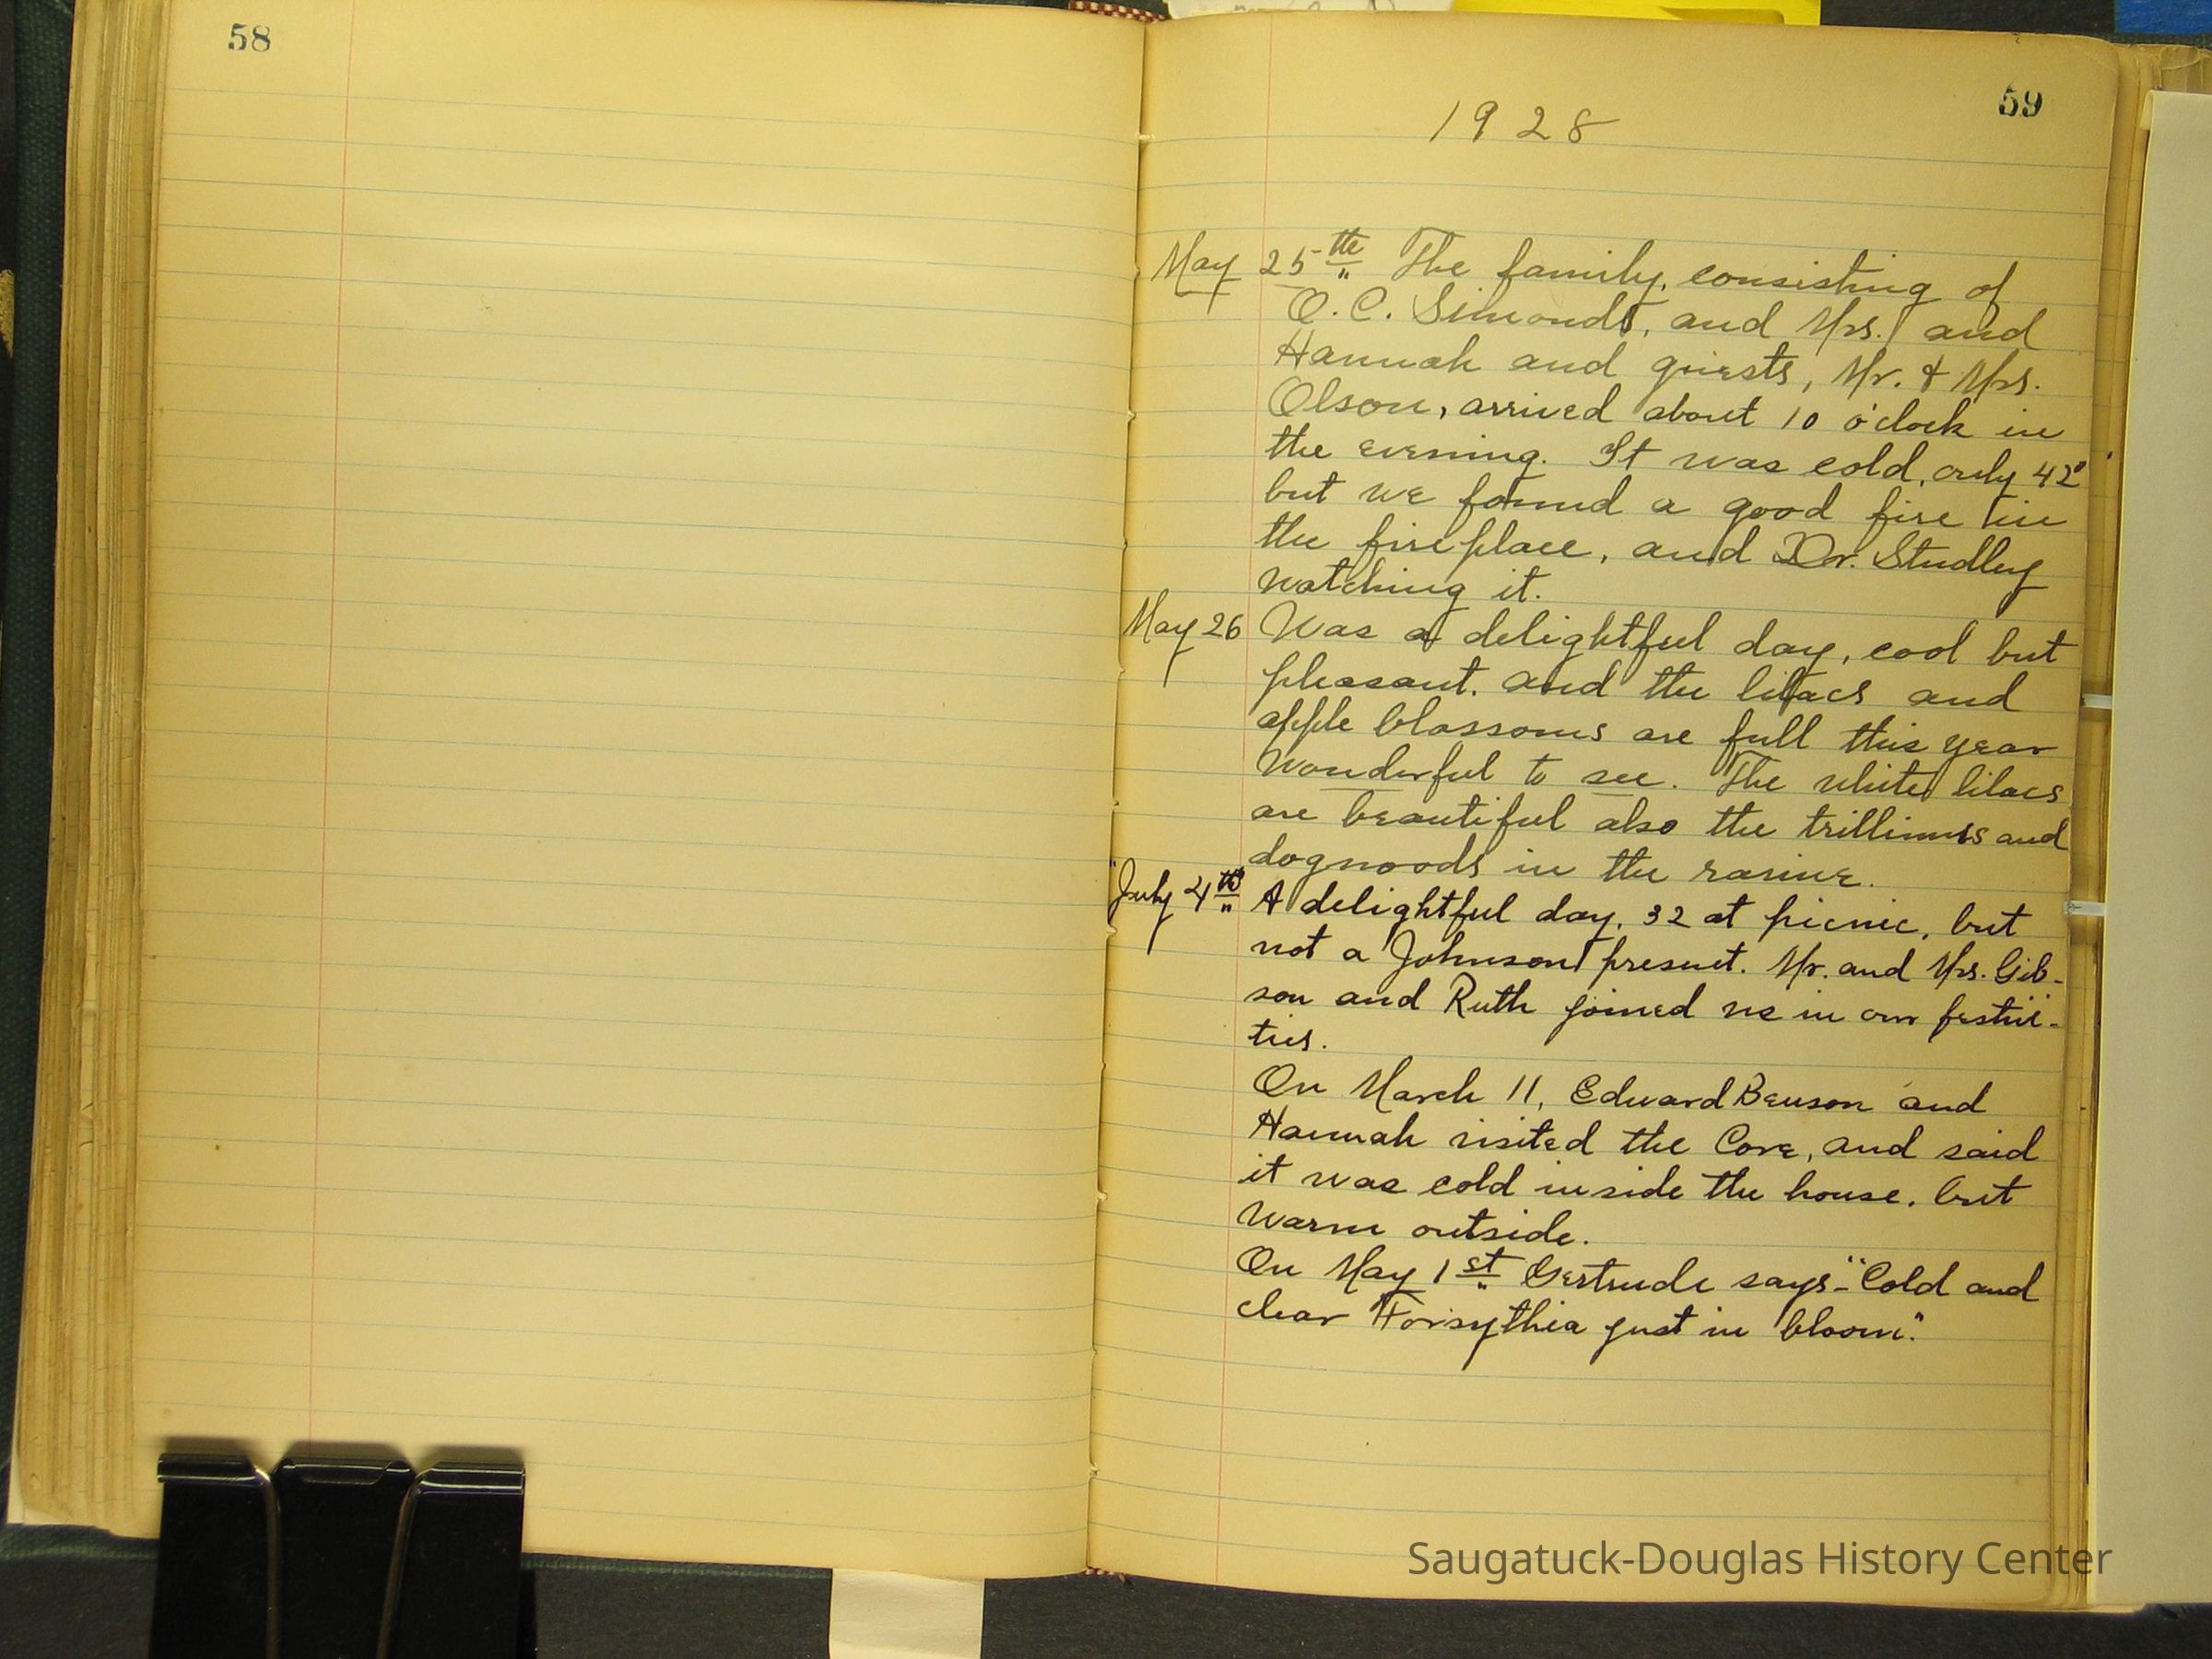 58
59
1928
May 25th The family, consisting of
O. C. Simonds, and Mrs. and
Hannah and guests, Mr. & Mrs.
Olson, arrived about 10 o'clock in
the evening. It was cold, only 42°
but we found a good fire in
the fireplace, and Dr. Studley
watching it.
May 26 Was a delightful day, cool but
pleasant. and the lilacs and
apple blossoms are full this year
Wonderful to see. The white lilacs
are beautiful also the trilliums and
dogwoods in the ravine.
July 4th A delightful day, 32 at picnic, but
not a Johnson present. Mr. and Mrs. Gib-
son and Ruth joined us in our festivi-
ties.
On March 11, Edward Benson and
Hannah visited the Cove, and said
it was cold inside the house, but
warm outside.
On May 1st Gertrude says - "Cold and
clear Forsythia just in bloom."
Saugatuck-Douglas History Center